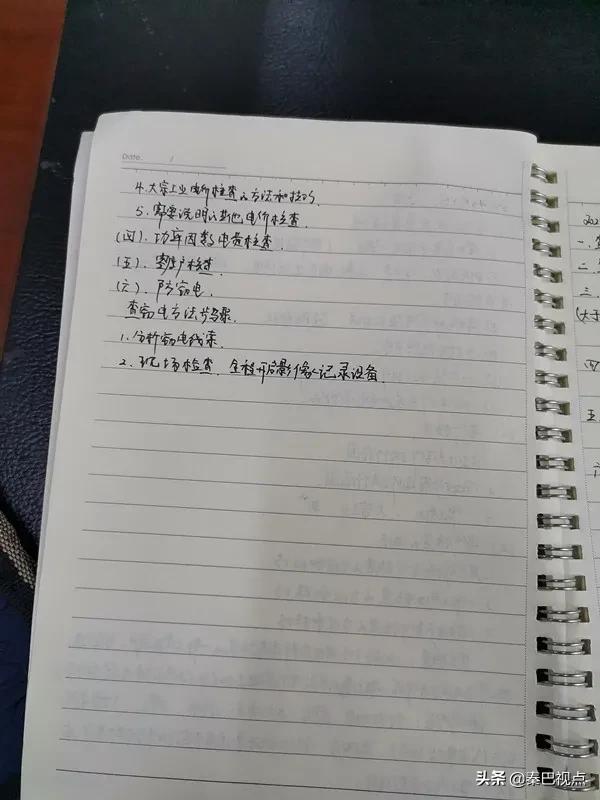 Date. /
4.大宗工业电价检查的方法和技巧.
5.需要说明的其他电价检查.
(四).功率因数电费检查.
(五).客户检查.
(六).防窃电.
查窃电方法步骤.
1.分析窃电线索.
2.现场检查.全程开启影像记录设备.
一.
二.
三.
(大于
四
五.
头条 @秦巴视点